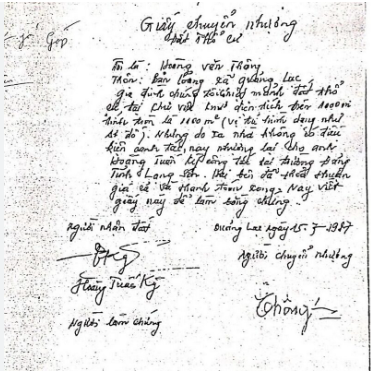 Giấy chuyển nhượng
đất thổ cư
Tôi là: Hoàng văn Thông
Thôn: Bản Loỏng xã Quảng Lạc,
gia đình chúng tôi có mảnh đất thổ
cư tại khu vực diện tích trên 1000 m
là 1000 m² (vị trí hình dạng như
sơ đồ). Nhưng do xa nhà không có điều
kiện canh tác, nay nhượng lại cho anh
Hoàng Tuấn Kỳ công tác tại trường Đảng
Tỉnh Lạng Sơn. Hai bên đã thoả thuận
giá cả và thanh toán xong. Nay viết
giấy này để làm bằng chứng.
người nhận đất
Quảng Lạc ngày 15.7.1987
Người chuyển nhượng
Hoàng Tuấn Kỳ
Thông
Người làm chứng